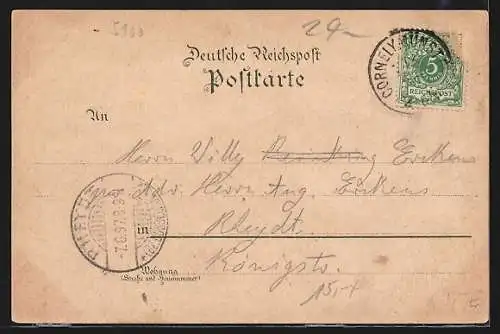 5100
29.-
Deutsche Reichspost
Postkarte
CORNELYMÜNST
5
REICHSPOST
An
Herrn Willy Erckens
Adr. Herrn Aug. Erckens
RHEYDT
7.6.97.8-9
in
Rheydt
Königstr.
Wohnung
(Straße und Hausnummer)
15,-